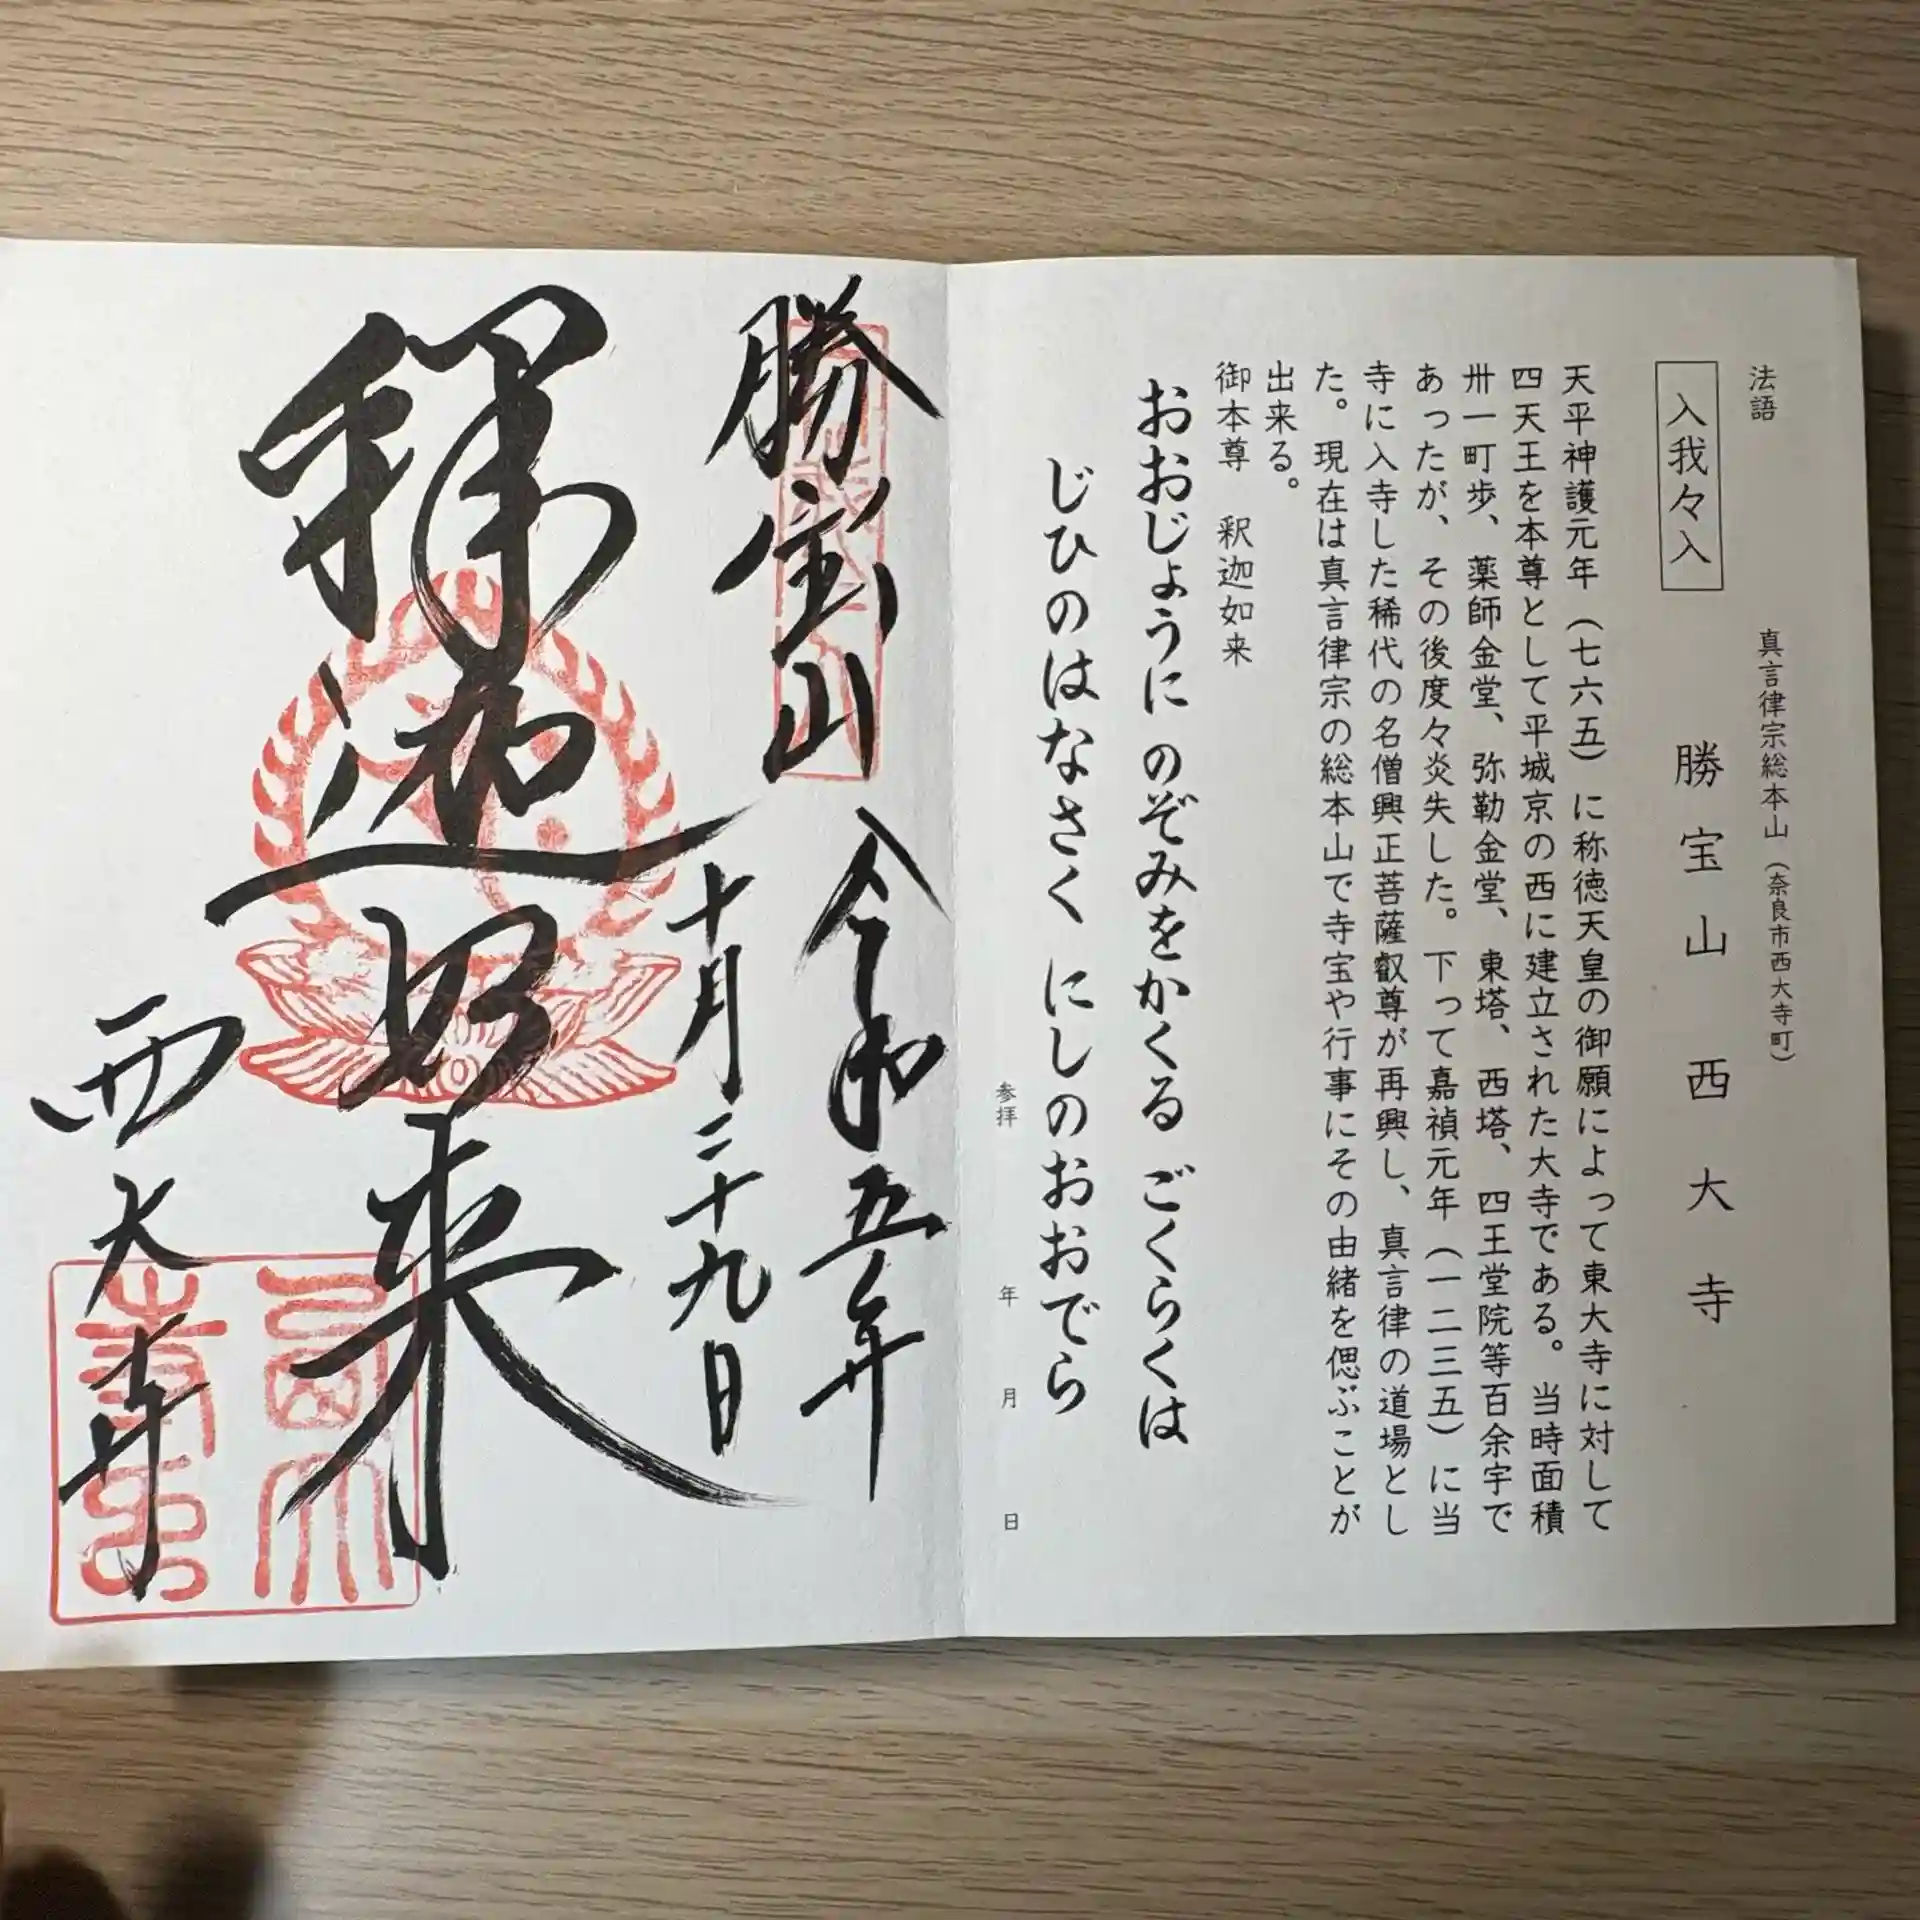 法語
真言律宗総本山（奈良市西大寺町）
入我々入
勝宝山 西大寺
天平神護元年（七六五）に称徳天皇の御願によって東大寺に対して
四天王を本尊として平城京の西に建立された大寺である。当時面積
卅一町歩、薬師金堂、弥勒金堂、東塔、西塔、四王堂院等百余宇で
あったが、その後度々炎失した。下って嘉禎元年（一二三五）に当
寺に入寺した稀代の名僧興正菩薩叡尊が再興し、真言律の道場とし
た。現在は真言律宗の総本山で寺宝や行事にその由緒を偲ぶことが
出来る。
御本尊 釈迦如来
おおじょうに のぞみをかくる ごくらくは
じひのはなさく にしのおおでら
参拝 年 月 日
勝宝山
令和五年
十月二十九日
釋迦如来
西大寺